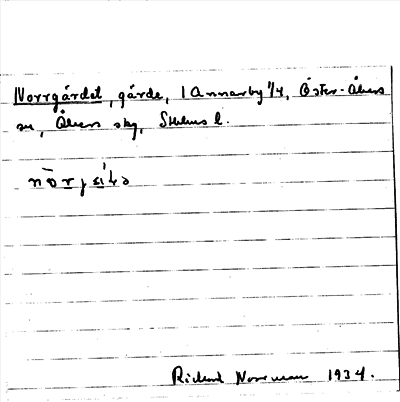 Norrgärdet, gärde, 1 Annarby 1/4, Öster-Åkers
sn, Åkers skg, Sthlms l.
Richard Norrman 1934.